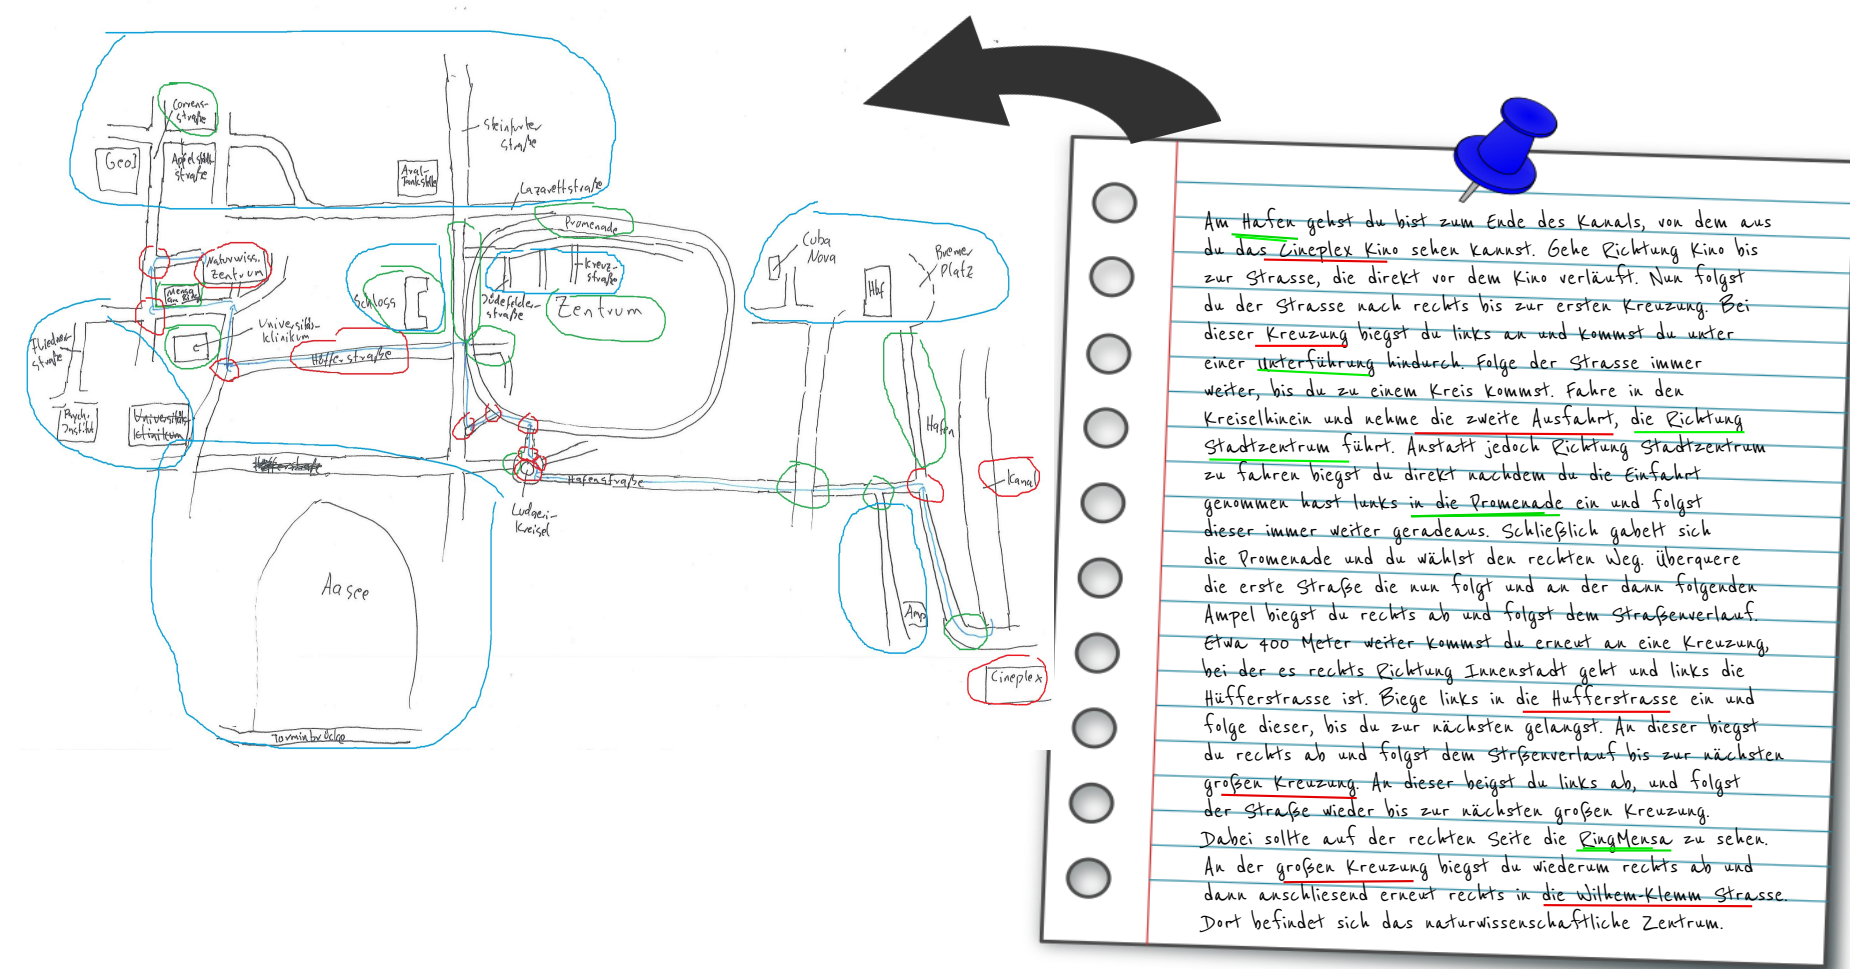 Correns-
straße
Geo1
Apfelstädt
straße
Aral-
Tankstelle
Steinfurter
straße
Lazarettstraße
Promenade
Naturwiss.
Zentrum
Mensa
am Ring
Schloss
Kreuz-
straße
Jüdefelder-
straße
Zentrum
Cuba
Nova
Bremer
Platz
Hbf
Fliedner
straße
Universitäts-
klinikum
Hüfferstraße
Psych.
Institut
Universitäts
klinikum
Hafen
Kanal
Hafenstraße
Ludgeri-
Kreisel
Aasee
Amp
Cineplex
Torminbrücke
Am Hafen gehst du bist zum Ende des Kanals, von dem aus
du das Cineplex Kino sehen kannst. Gehe Richtung Kino bis
zur Strasse, die direkt vor dem Kino verläuft. Nun folgst
du der Strasse nach rechts bis zur ersten Kreuzung. Bei
dieser Kreuzung biegst du links an und kommst du unter
einer Unterführung hindurch. Folge der Strasse immer
weiter, bis du zu einem Kreis kommst. Fahre in den
Kreiselhinein und nehme die zweite Ausfahrt, die Richtung
Stadtzentrum führt. Anstatt jedoch Richtung Stadtzentrum
zu fahren biegst du direkt nachdem du die Einfahrt
genommen hast lunks in die Promenade ein und folgst
dieser immer weiter geradeaus. Schließlich gabelt sich
die Promenade und du wählst den rechten Weg. Überquere
die erste Straße die nun folgt und an der dann folgenden
Ampel biegst du rechts ab und folgst dem Straßenverlauf.
Etwa 400 Meter weiter kommst du erneut an eine Kreuzung,
bei der es rechts Richtung Innenstadt geht und links die
Hüfferstrasse ist. Biege links in die Hufferstrasse ein und
folge dieser, bis du zur nächsten gelangst. An dieser biegst
du rechts ab und folgst dem Strßenverlauf bis zur nächsten
großen Kreuzung. An dieser beigst du links ab, und folgst
der Straße wieder bis zur nächsten großen Kreuzung.
Dabei sollte auf der rechten Seite die RingMensa zu sehen.
An der großen Kreuzung biegst du wiederum rechts ab und
dann anschliesend erneut rechts in die Wilhem-Klemm Strasse.
Dort befindet sich das naturwissenschaftliche Zentrum.